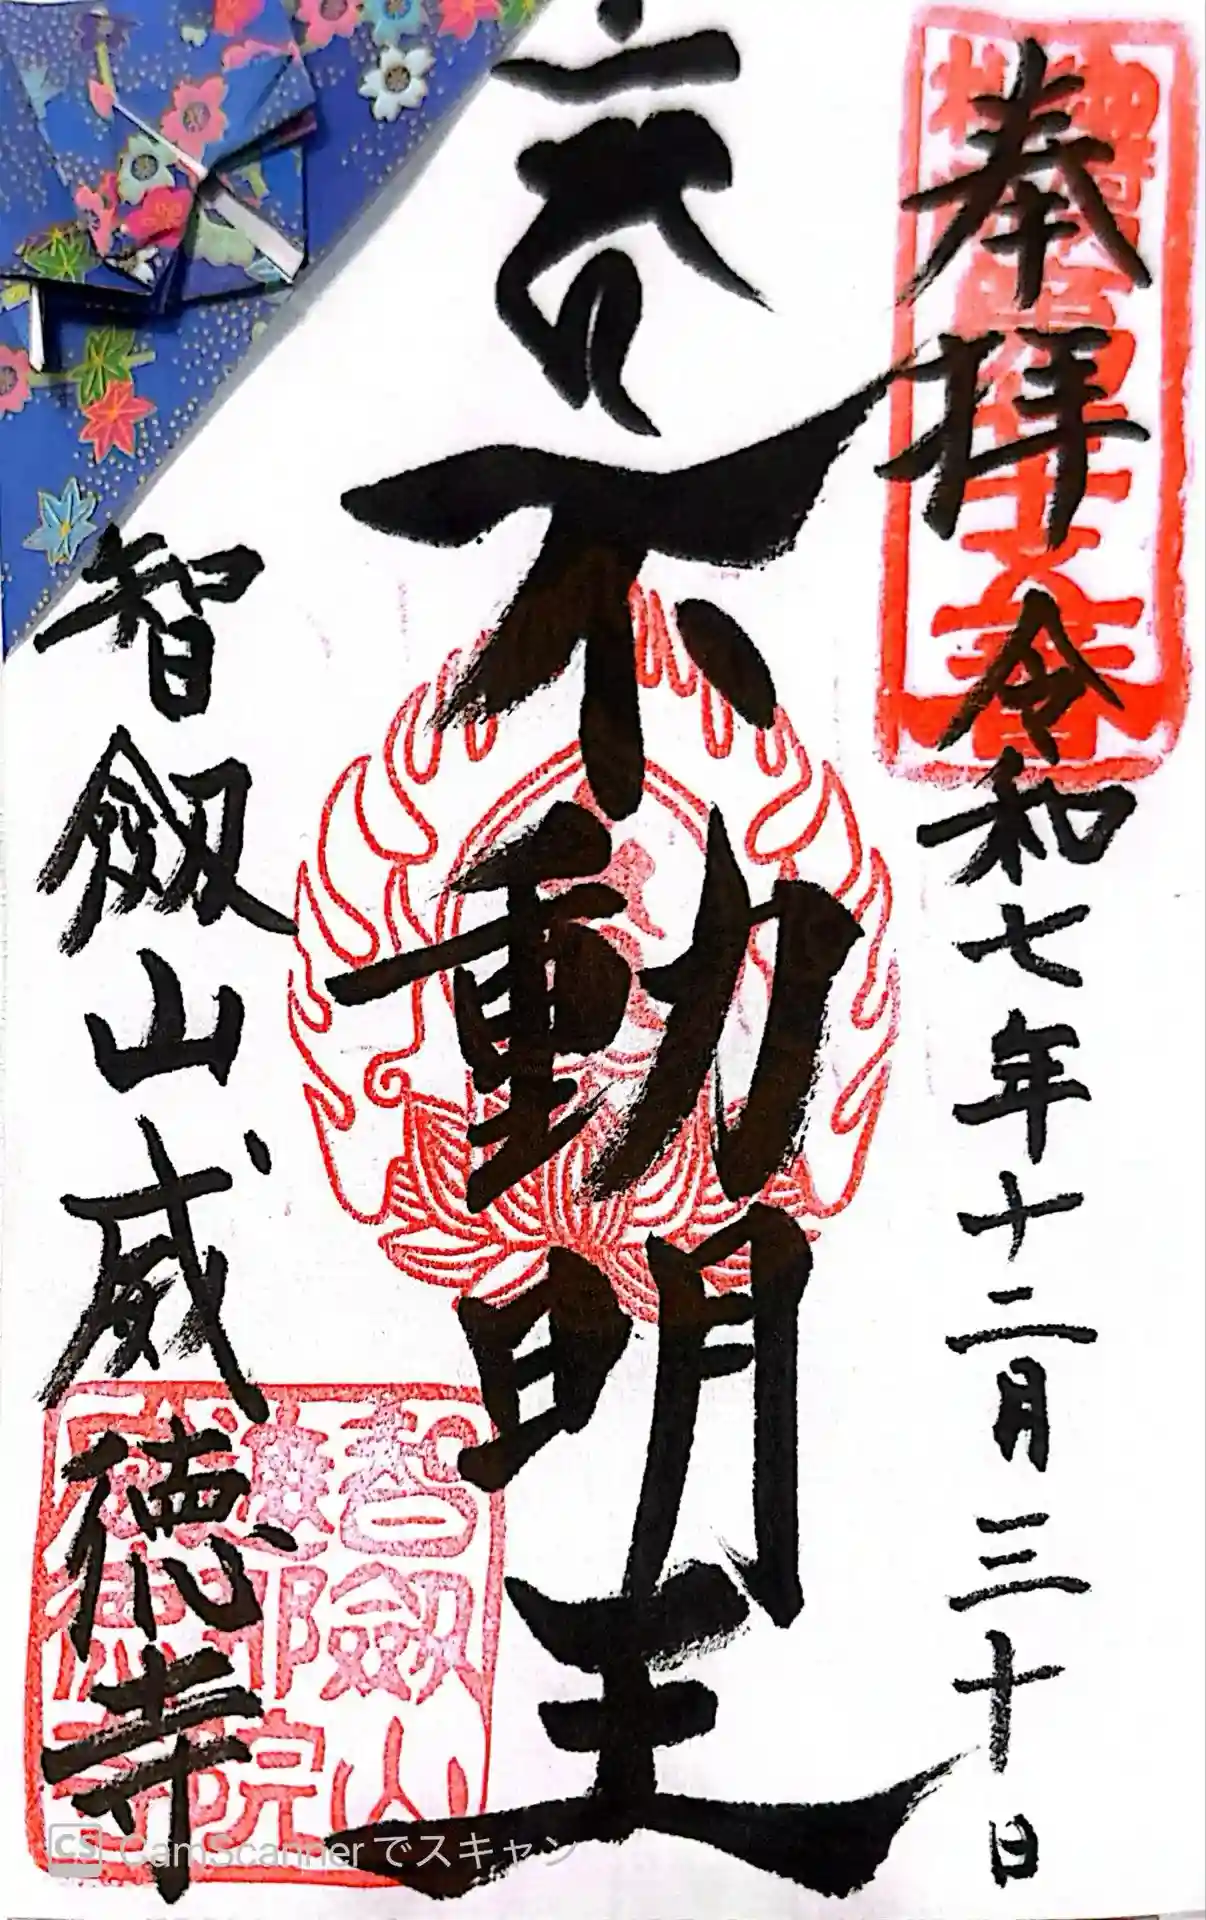 奉拝 令和七年十二月三十日
不動明王
智劔山威徳寺
智劔山
CS CamScannerでスキャン